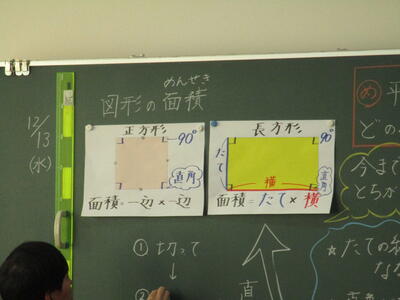 めんせき
図形の面積
12/13
(水)
正方形
90°
直角
面積=一辺×一辺
長方形
90°
たて
横
直角
面積=たて×横
① 切って
↓
②
め 平
どの
今まで
とちが
★たての
な
直